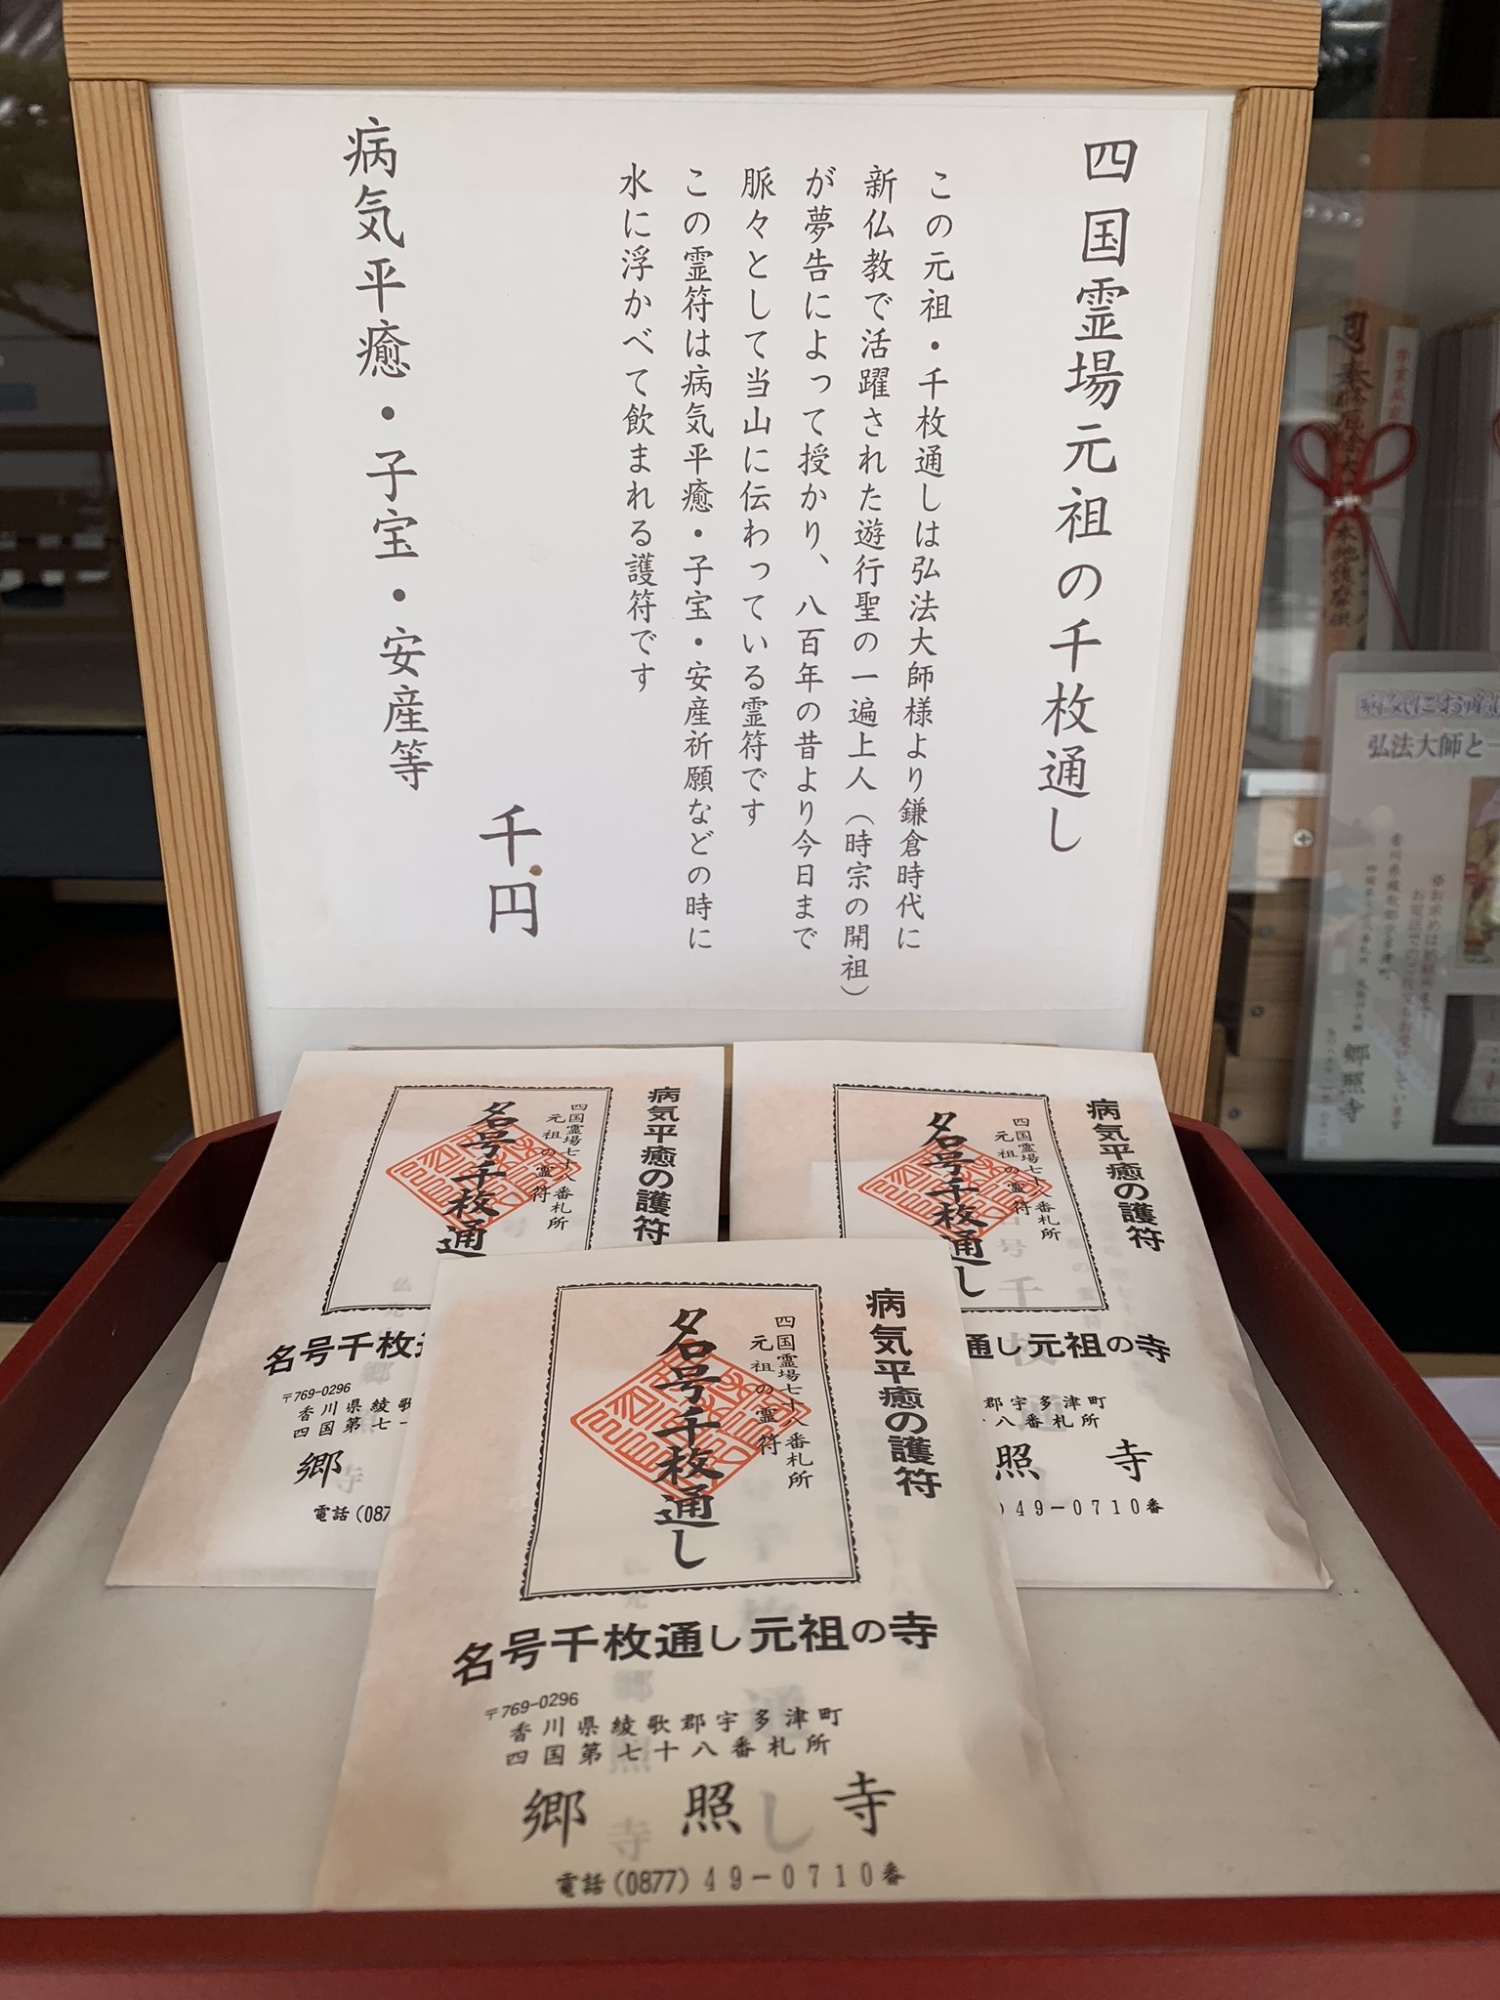 四国霊場元祖の千枚通し
この元祖・千枚通しは弘法大師様より鎌倉時代に
新仏教で活躍された遊行聖の一遍上人（時宗の開祖）
が夢告によって授かり、八百年の昔より今日まで
脈々として当山に伝わっている霊符です
この霊符は病気平癒・子宝・安産祈願などの時に
水に浮かべて飲まれる護符です
千円
病気平癒・子宝・安産等
病気平癒の護符
四国霊場七十八番札所
元祖の霊符
名号千枚通
名号千枚
〒769-0296
香川県綾歌
四国第七
郷
電話(087
病気平癒の護符
四国霊場七十八番札所
元祖の霊符
名号千枚通し
通し元祖の寺
郡宇多津町
八番札所
照寺
49-0710番
病気平癒の護符
四国霊場七十八番札所
元祖の霊符
名号千枚通し
名号千枚通し元祖の寺
〒769-0296
香川県綾歌郡宇多津町
四国第七十八番札所
郷照寺
電話(0877)49-0710番
弘法大師と
郷照寺